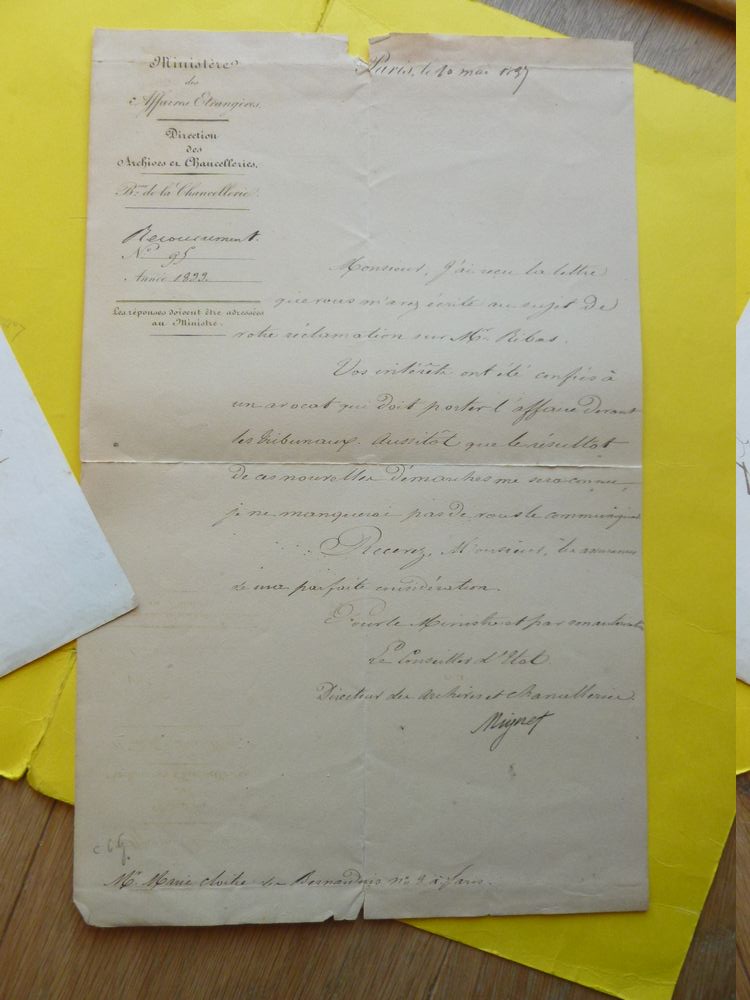 Ministère
des
Affaires Etrangères.
Direction
des
Archives et Chancelleries.
Bau de la Chancellerie.
Recouvrement.
No 95
Année 1833
Les réponses doivent être adressées
au Ministre.
Paris, le 10 mai 1837
Monsieur, J'ai reçu la lettre
que vous m'avez écrite au sujet de
votre réclamation sur Mr. Ribas.
Vos intérêts ont été confiés à
un avocat qui doit porter l'affaire devant
les tribunaux. Aussitôt que le résultat
de ces nouvelles démarches me sera connu,
je ne manquerai pas de vous le communiquer
Recevez, Monsieur, les assurances
de ma parfaite considération.
Pour le Ministre et par son autorisation
Le Conseiller d'Etat
Directeur des archives et chancelleries
Mignet
Mr. Marie cloître des Bernardins no à Paris.